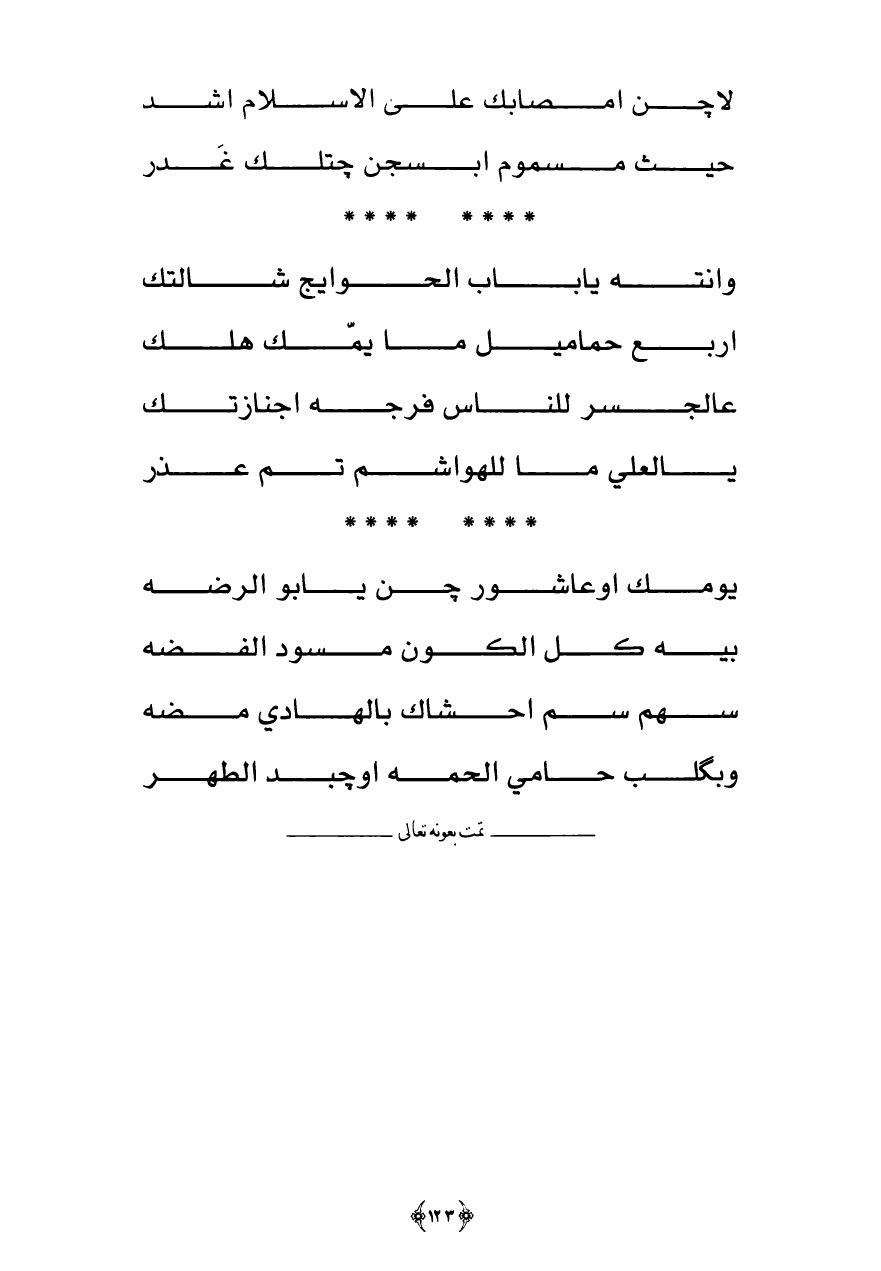 لاچن امصابك على الاسلام اشد
حيث مسموم ابسجن چتلك غَدر
**** ****
وانته ياباب الحوايج شالتك
اربع حماميل ما يمّك هلك
عالجسر للناس فرجه اجنازتك
يالعلي ما للهواشم تم عذر
**** ****
يومك اوعاشور چن يابو الرضه
بيه كل الكون مسود الفضه
سهم سم احشاك بالهادي مضه
وبگلب حامي الحمه اوچبد الطهر
تمّت بعونه تعالى
﴿١٢٣﴾